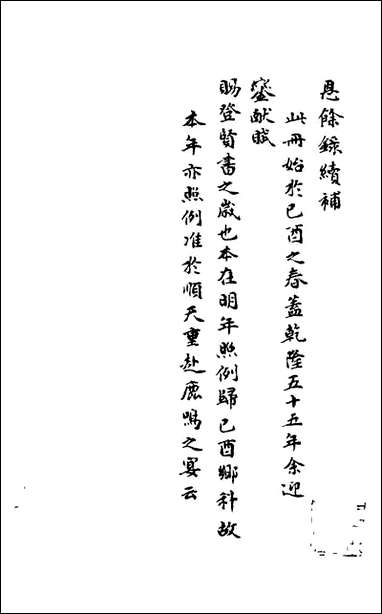 恩餘錄續補
此冊始於己酉之春蓋乾隆五十五年余迎
鑾獻賦
賜登賢書之歲也本在明年照例歸己酉鄉科故
本年亦照例准於順天重赴鹿鳴之宴云